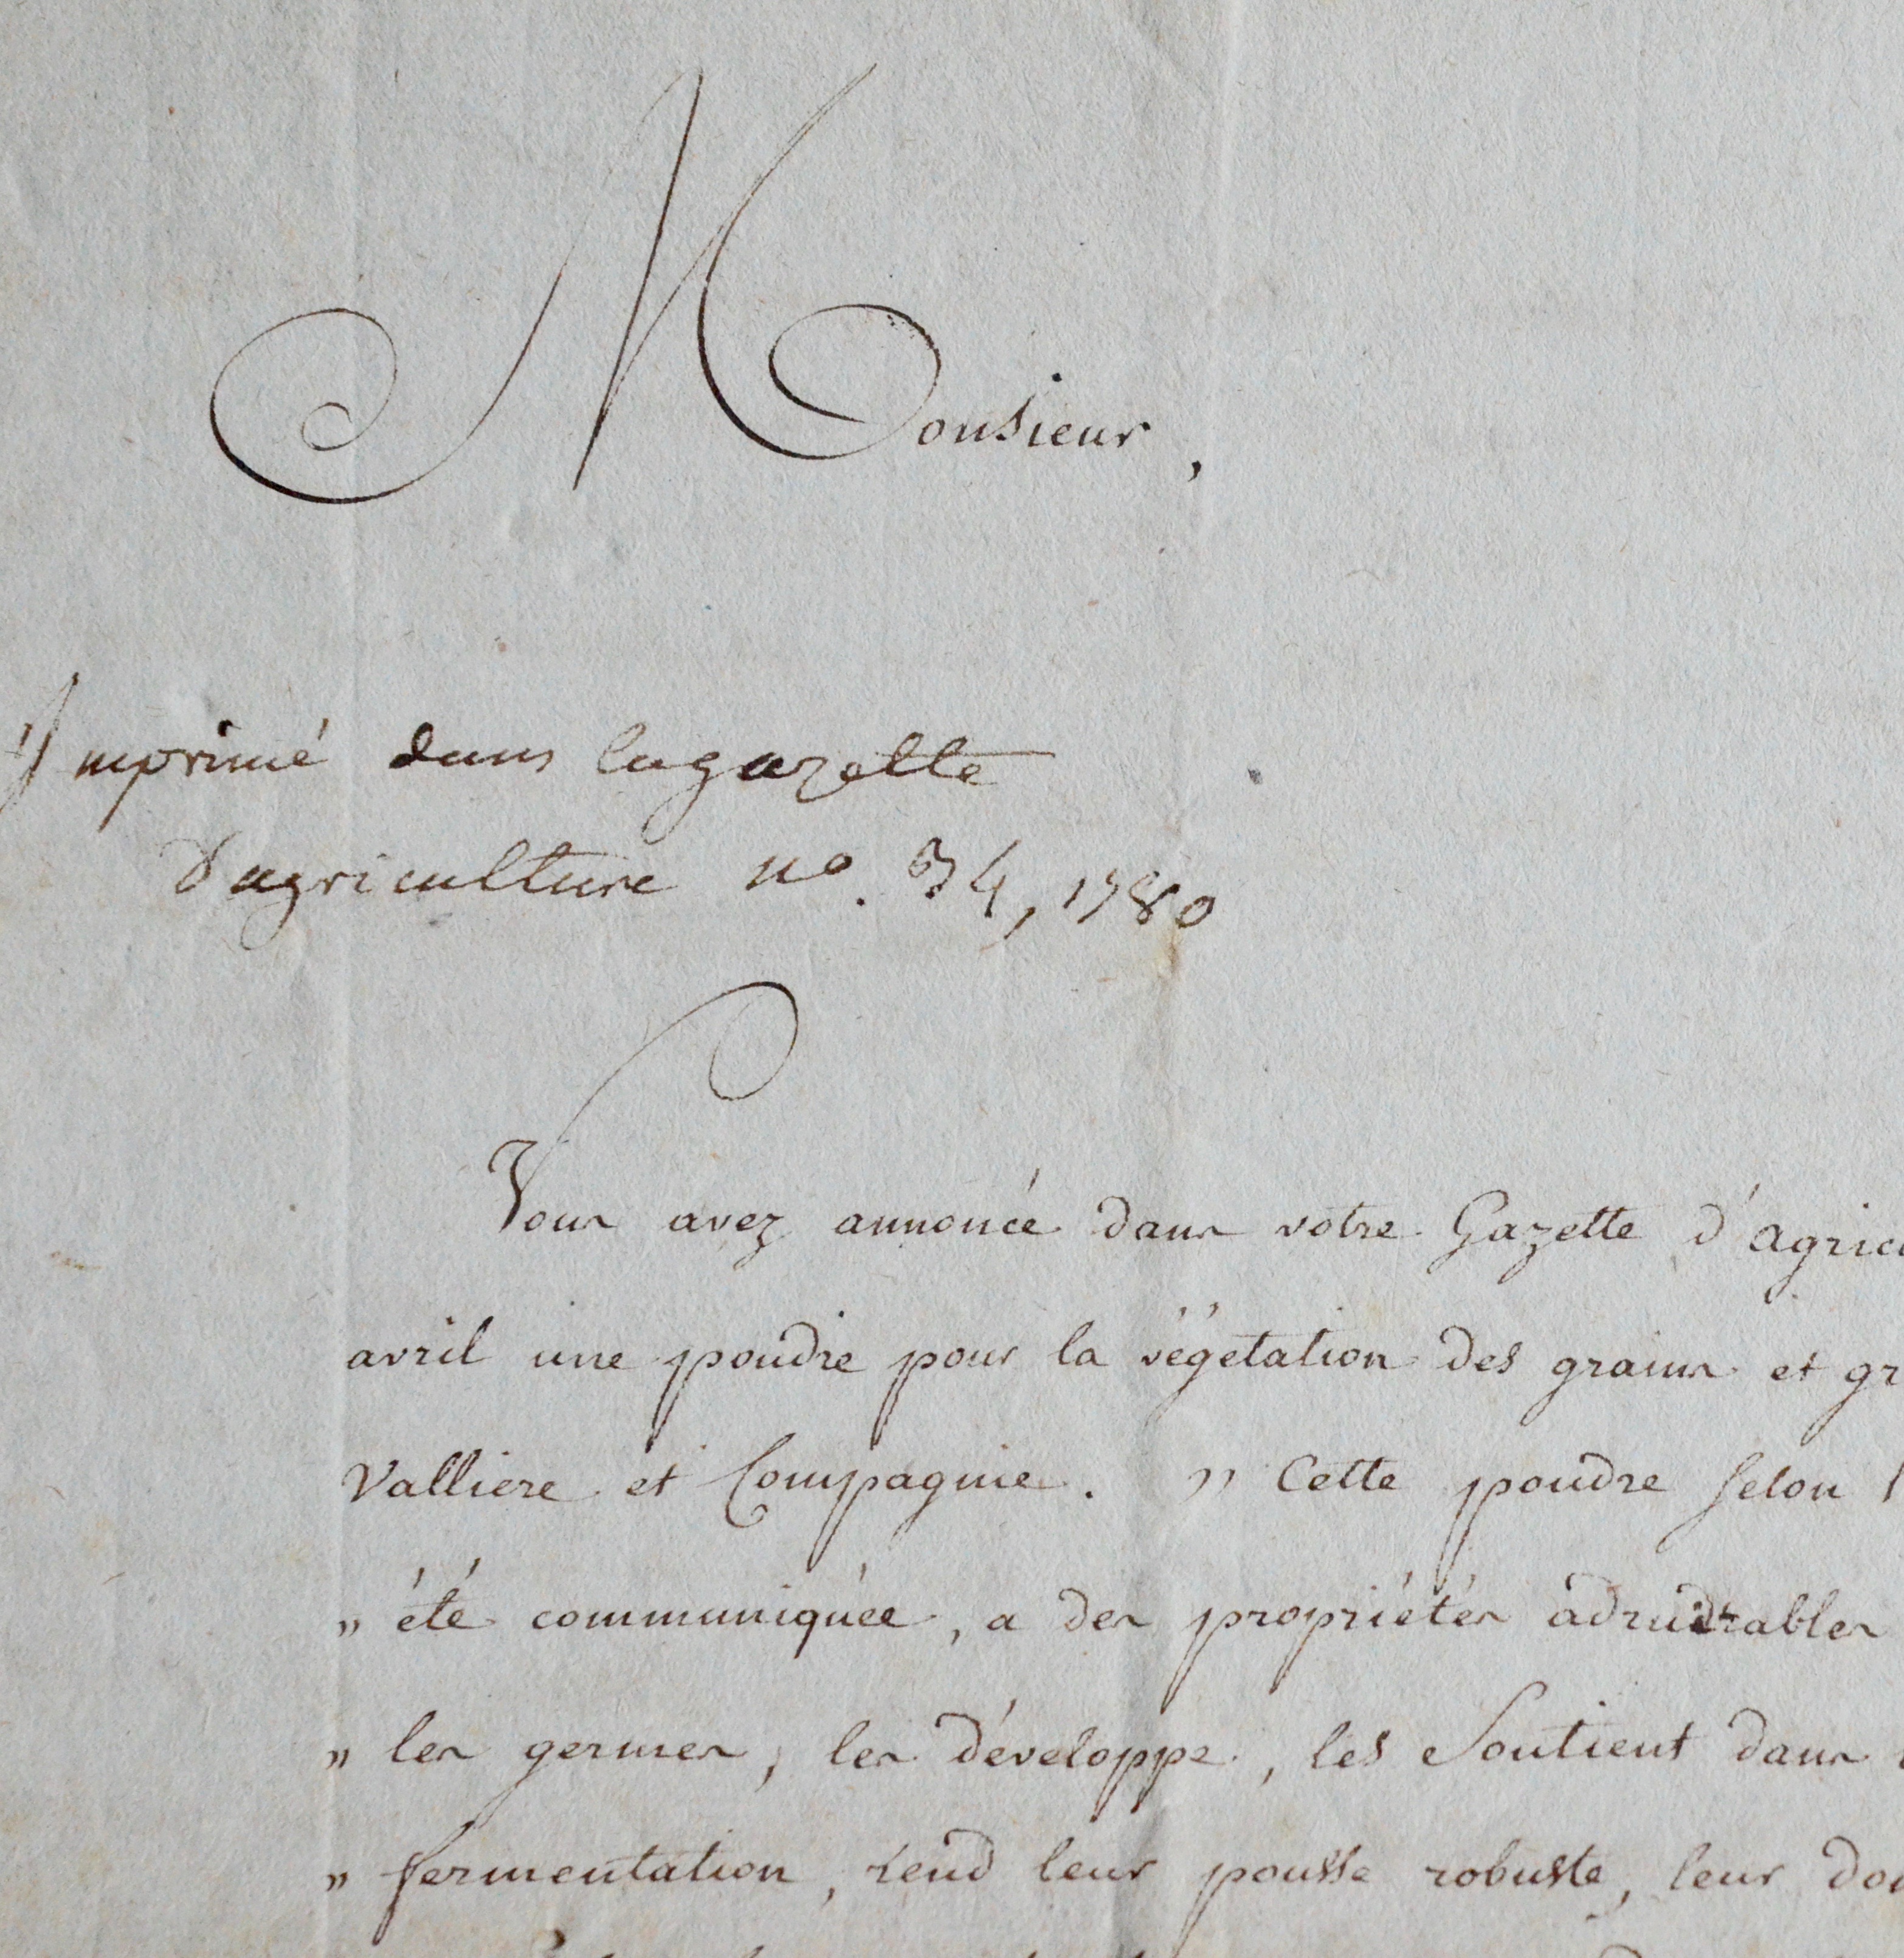 Monsieur,
Imprimé dans la gazette
d'agriculture no. 34, 1780
Vous avez annoncé dans votre Gazette d'agricu
avril une poudre pour la végétation des grains et gr
Valliere et Compagnie. " Cette poudre selon l
" été communiquée, a des propriétés admirables
" les germes, les développe, les soutient dans
" fermentation, rend leur pousse robuste, leur don